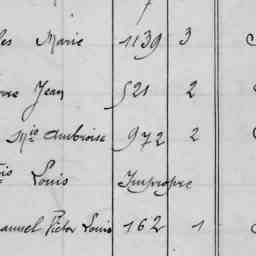 les Marie 1139 3
rre Jean 521 2
Mis Ambroise 972 2
is Louis Impropre
anuel Victor Louis 162 1